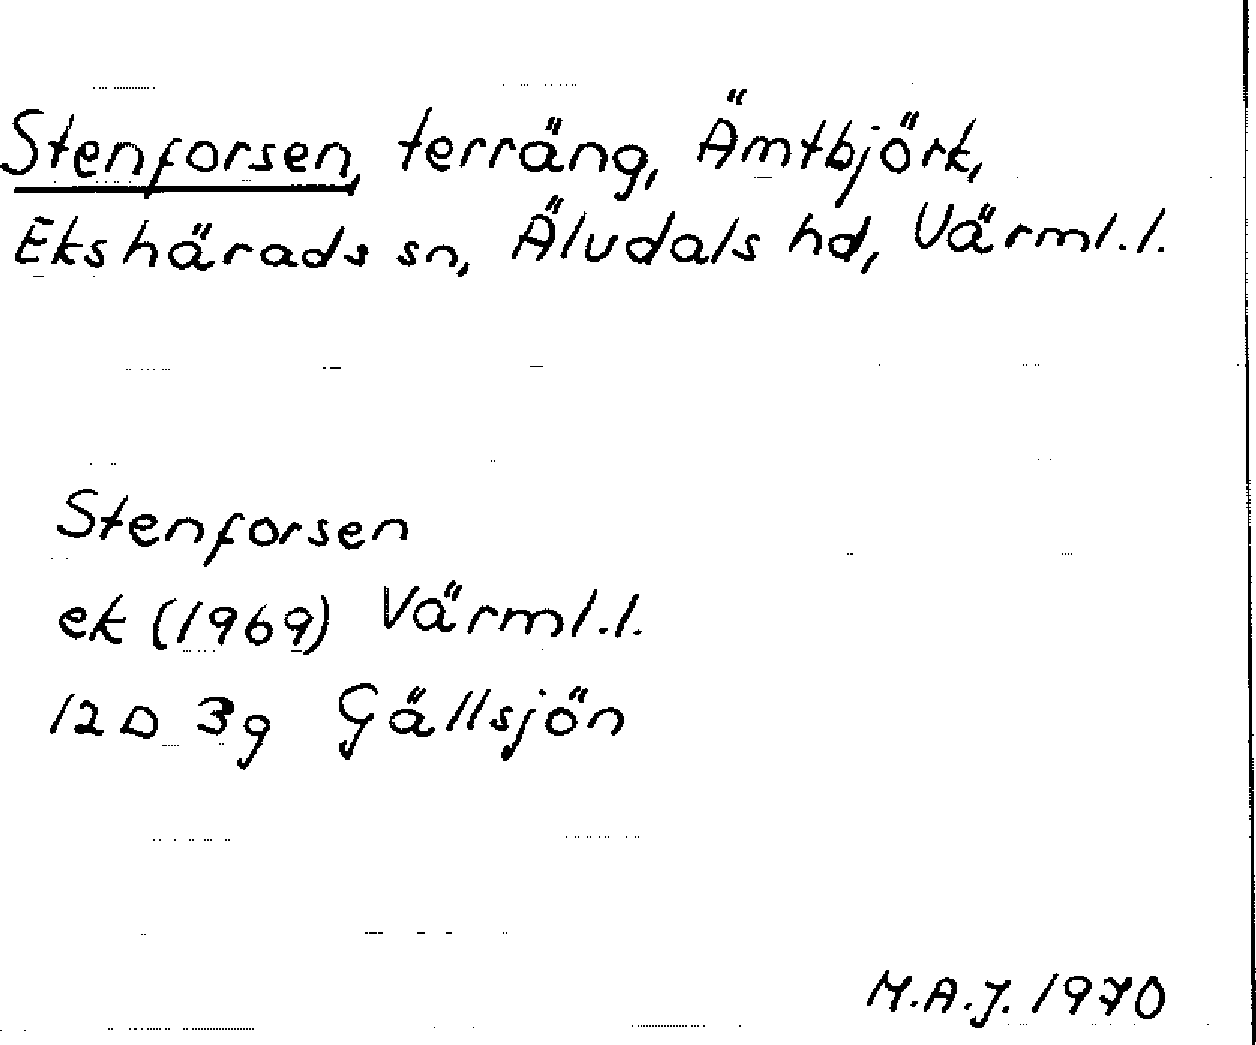 Stenforsen, terräng, Ämtbjörk,
Ekshärads sn, Äludals hd, Värml.l.
Stenforsen
ek (1969) Värml.l.
12D 3g Gällsjön
M.A.J. 1970